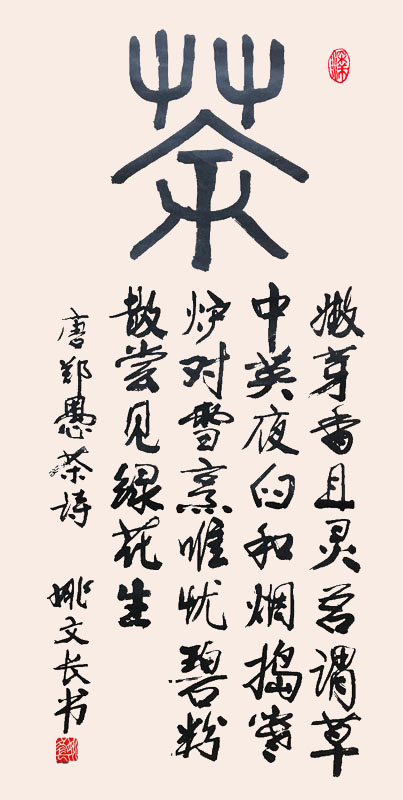 茶
嫩芽香且灵吾谓草
中英夜臼和烟捣寒
炉对雪烹唯忧碧粉
散尝见绿花生
唐郑愚茶诗 姚文长书